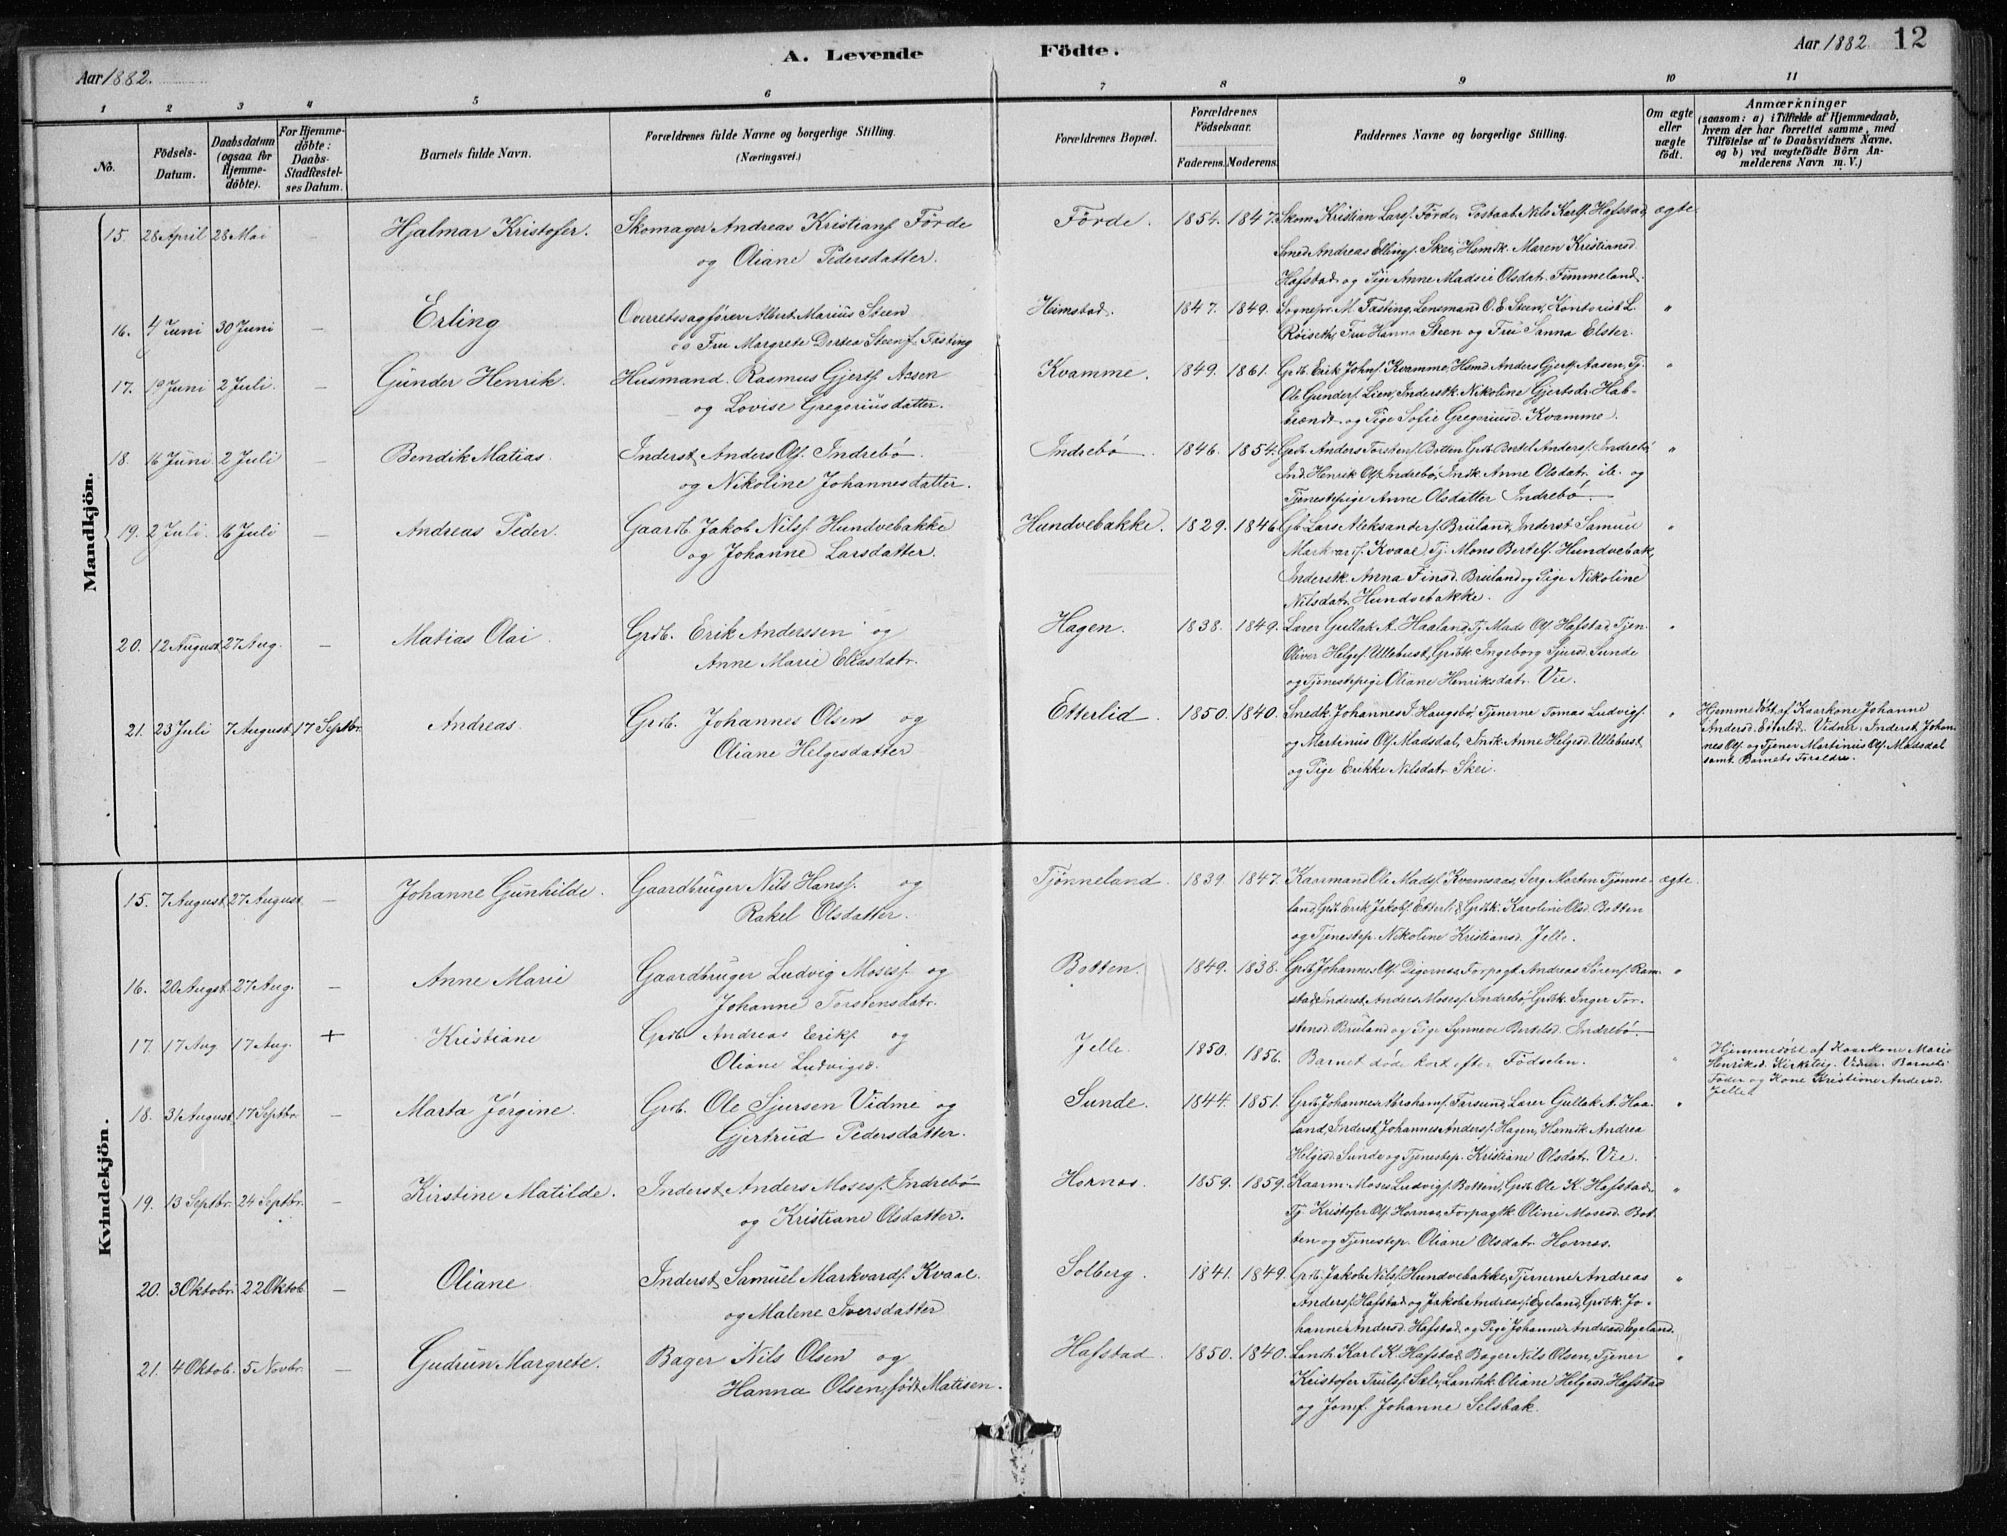 Aar 1882.
A. Levende Födte.
Aar 1882. 12
1 2 3 4 5 6 7 8 9 10 11
No.
Födsels-Datum.
Daabsdatum (ogsaa for Hjemmedöbte).
For Hjemmedöbte: Daabs-Stadfestelses Datum.
Barnets fulde Navn.
Forældrenes fulde Navne og borgerlige Stilling. (Næringsvei.)
Forældrenes Bopæl.
Forældrenes Födselsaar.
Faderens. Moderens.
Faddernes Navne og borgerlige Stilling.
Om ægte eller uægte födt.
Anmærkninger
(saasom: a) i Tilfælde af Hjemmedaab,
hvem der har forrettet samme, med
Tilföielse af to Daabsvidners Navne,
og b) ved uægtefödte Börn Anmelderens Navn m. V.)
Mandkjön.
15. 28 April 28 Mai — Hjalmar Kristofer. Skomager Andreas Kristiansf Förde Förde. 1854. 1847. Skom. Kristian Larsf. Förde, Postaab. Nils Karlsf. Hafstad, ægte.
og Oliane Pedersdatter. Smed Andreas Ellingsf. Skei, Hsmdk. Maren Kristiansd.
Hafstad og Pige Anne Madsie Olsdatr. Fimmeland.
16. 4 Juni 30 Juni — Erling Overretssagförer Albert Marius Steen Heimstad. 1847. 1849. Sognepr. M. Fasting, Lensmand O. E. Steen, Kontorist L. "
og Fru Margrete Dortea Steen f. Fasting Röiseth, Fru Hanna Steen og Fru Sanna Elster.
17. 10 Juni 2 Juli. — Gunder Henrik. Husmand Rasmus Gjertsf Aasen Kvamme. 1849. 1861. Grdb. Erik Johnsf. Kvamme, Hsmd Anders Gjertsf. Aasen, Tj. "
og Lovise Gregoriusdatter. Ole Gundersf. Lien, Inderstk. Nikoline Gjertsdr. Hab-
brændt og Pige Sofie Gregoriusd. Kvamme.
18. 16 Juni 2 Juli — Bendik Matias. Inderst Anders Olsf. Indrebö Indrebö 1846. 1854. Grdb. Anders Torstensf. Botten, Grdb. Bertel Andersf. Indrebö "
og Nikoline Johannesdatter. Ind. Henrik Olsf Indrebö, Indk. Anne Olsdatr. ib. og
Tjenestepige Anne Olsdatter Indrebö.
19. 2 Juli. 16 Juli — Andreas Peder. Gaardb. Jakob Nilsf. Hundvebakke Hundvebakke. 1829. 1846. Gb. Lars Aleksandersf. Bruland, Inderst Samuel "
og Johanne Larsdatter. Markvardsf. Kvaal, Tj. Mons Bertelsf. Hundvebak,
Inderstk. Anna Finsd. Bruland og Pige Nikoline
Nilsdatr. Hundvebakke.
20. 12 August 27 Aug. — Matias Olai. Grdb. Erik Anderssen og Hagen. 1838. 1849. Lærer Gullak A. Haaland, Tj. Mads Olsf. Hafstad, Tjen. "
Anne Marie Eliasdatr. Oliver Helgesf. Ullebust, Grdbk. Ingeborg Sjursd. Sunde
og Tjenestepige Oliane Henriksdatr. Vie.
21. 23 Juli 7 August 17 Septbr. Andreas. Grdb. Johannes Olsen og Etterlid. 1850. 1840. Snedk. Johannes T. Haugsbö, Tjenerne Tomas Ludvigsf. " Hjemmedöbt af Kaarkone Johanne
Oliane Helgesdatter og Martinus Olsf Madsdal, Indk. Anne Helgesd. Ullebust Andersd. Etterlid. Vidner: Inderst Johan-
og Pige Erikke Nilsdatr. Skei. nes Olsf. og Tjener Martinus Olsf. Madsdal
samt Barnets Forældre.
Kvindekjön.
15. 7 August 27 August. — Johanne Gunhilde. Gaardbruger Nils Hansf. og Tjönneland. 1839. 1847. Kaarmand Ole Madsf. Kvamsaas, Serg. Morten Tjönne- ægte.
Rakel Olsdatter. land, Grdb. Erik Jakobsf. Etterlid, Grdbk. Karoline Olsd. Botten
og Tjenestep. Nikoline Kristiansd. Jelle.
16. 20 Augst. 27 Aug. — Anne Marie Gaardbruger Ludvig Mosesf. og Botten. 1849. 1838. Grdb. Johannes Olsf. Digernæs, Forpagt. Andreas Sörensf. Ram- "
Johanne Torstensdatr. stad, Inderst Anders Mosesf. Indrebö, Grdbk. Inger Tor-
stensd. Bruland og Pige Synneve Bertelsd. Indrebö.
17. 17 Aug. 17 Aug. + Kristiane Grdb. Andreas Eriksf. og Jelle. 1850. 1856. Barnet döde kort efter Födselen. " Hjemmedöbt af Kaarkone Marie
Oliane Ludvigsd. Henriksd. Kirkeleig. Vidner: Barnets
Fader og Kone Kristine Andersd.
Jelle.
18. 31 August 17 Septbr. — Marta Jörgine. Grdb. Ole Sjursen Vidme og Sunde. 1844. 1851. Grdb. Johannes Abrahamsf. Farsund, Lærer Gullak A. Haa- "
Gjertrud Pedersdatter. land, Inderst Johannes Andersf. Hagen, Hsmdk. Andrea
Helgesd. Sunde og Tjenestep. Kristiane Olsdatr. Vie.
19. 13 Septbr. 24 Septbr. — Kirstine Matilde. Inderst Anders Mosesf. Indrebö Hornæs. 1859. 1859. Kaarm. Moses Ludvigsf. Botten, Grdb. Ole K. Hafstad, "
og Kristiane Olsdatter. Tj. Kristofer Olsf. Hornæs, Forpagtk. Oline Mosesd. Bot-
ten og Tjenestep. Oliane Olsdatr. Hornæs.
20. 3 Oktobr. 22 Oktob. — Oliane Inderst Samuel Markvardsf. Kvaal. Solberg. 1841. 1849. Grdb. Jakob Nilsf. Hundvebakke, Tjenerne Andreas "
og Malene Iversdatter Andersf. Hafstad og Jakob Andreasf Egeland, Grdbk. Jo-
hanne Andersd. Hafstad og Pige Johanne Andreasd Egeland.
21. 4 Oktob. 5 Novbr. — Gudrun Margrete. Bager Nils Olsen og Hafstad. 1850. 1840. Landh. Karl K. Hafstad, Bager Nils Olsen, Tjener "
Hanna Olsen, födt Matisen. Kristofer Trulsf. Sele, Landhk. Oliane Helgesd. Hafstad
og Jomf. Johanne Selsbak.